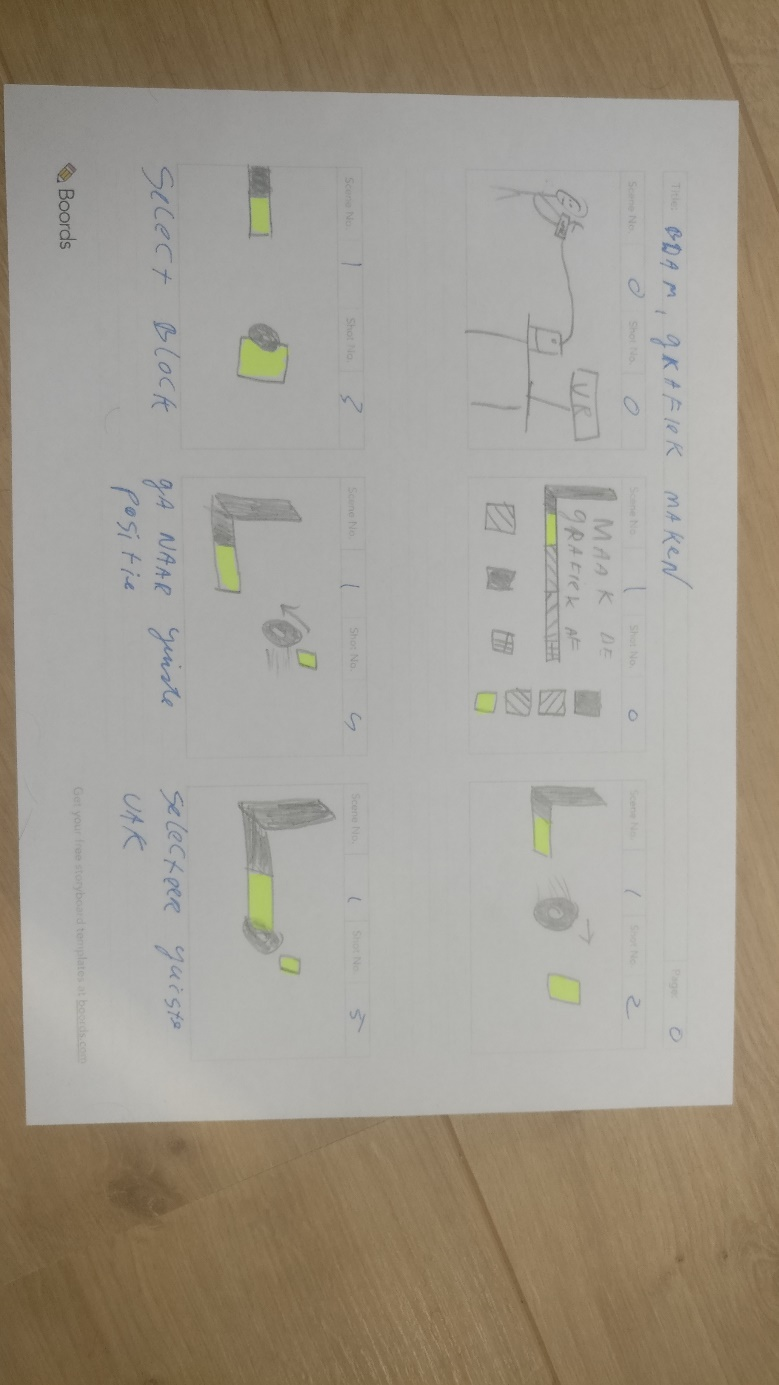 Title: BDAM, gRAFIEK MAKEN
Page: 0
Scene No. 0 Shot No. 0
VR
Scene No. 1 Shot No. 0
MAAK DE
gRAFIEK AF
Scene No. 1 Shot No. 2
Scene No. 1 Shot No. 3
SELECT BLOCK
Scene No. 1 Shot No. 4
gA NAAR juiste
positie
Scene No. 1 Shot No. 5
SELECTEER juiste
VAK
Boords
Get your free storyboard templates at boords.com